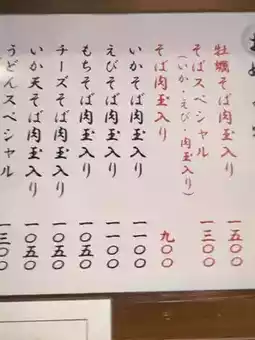 牡蠣そば肉玉入り 一五〇〇
そばスペシャル
(いか・えび・肉玉入り) 一三〇〇
そば肉玉入り 九〇〇
いかそば肉玉入り 一一〇〇
えびそば肉玉入り 一一〇〇
もちそば肉玉入り 一〇五〇
チーズそば肉玉入り 一〇五〇
いか天そば肉玉入り 一〇五〇
うどんスペシャル 一三〇〇